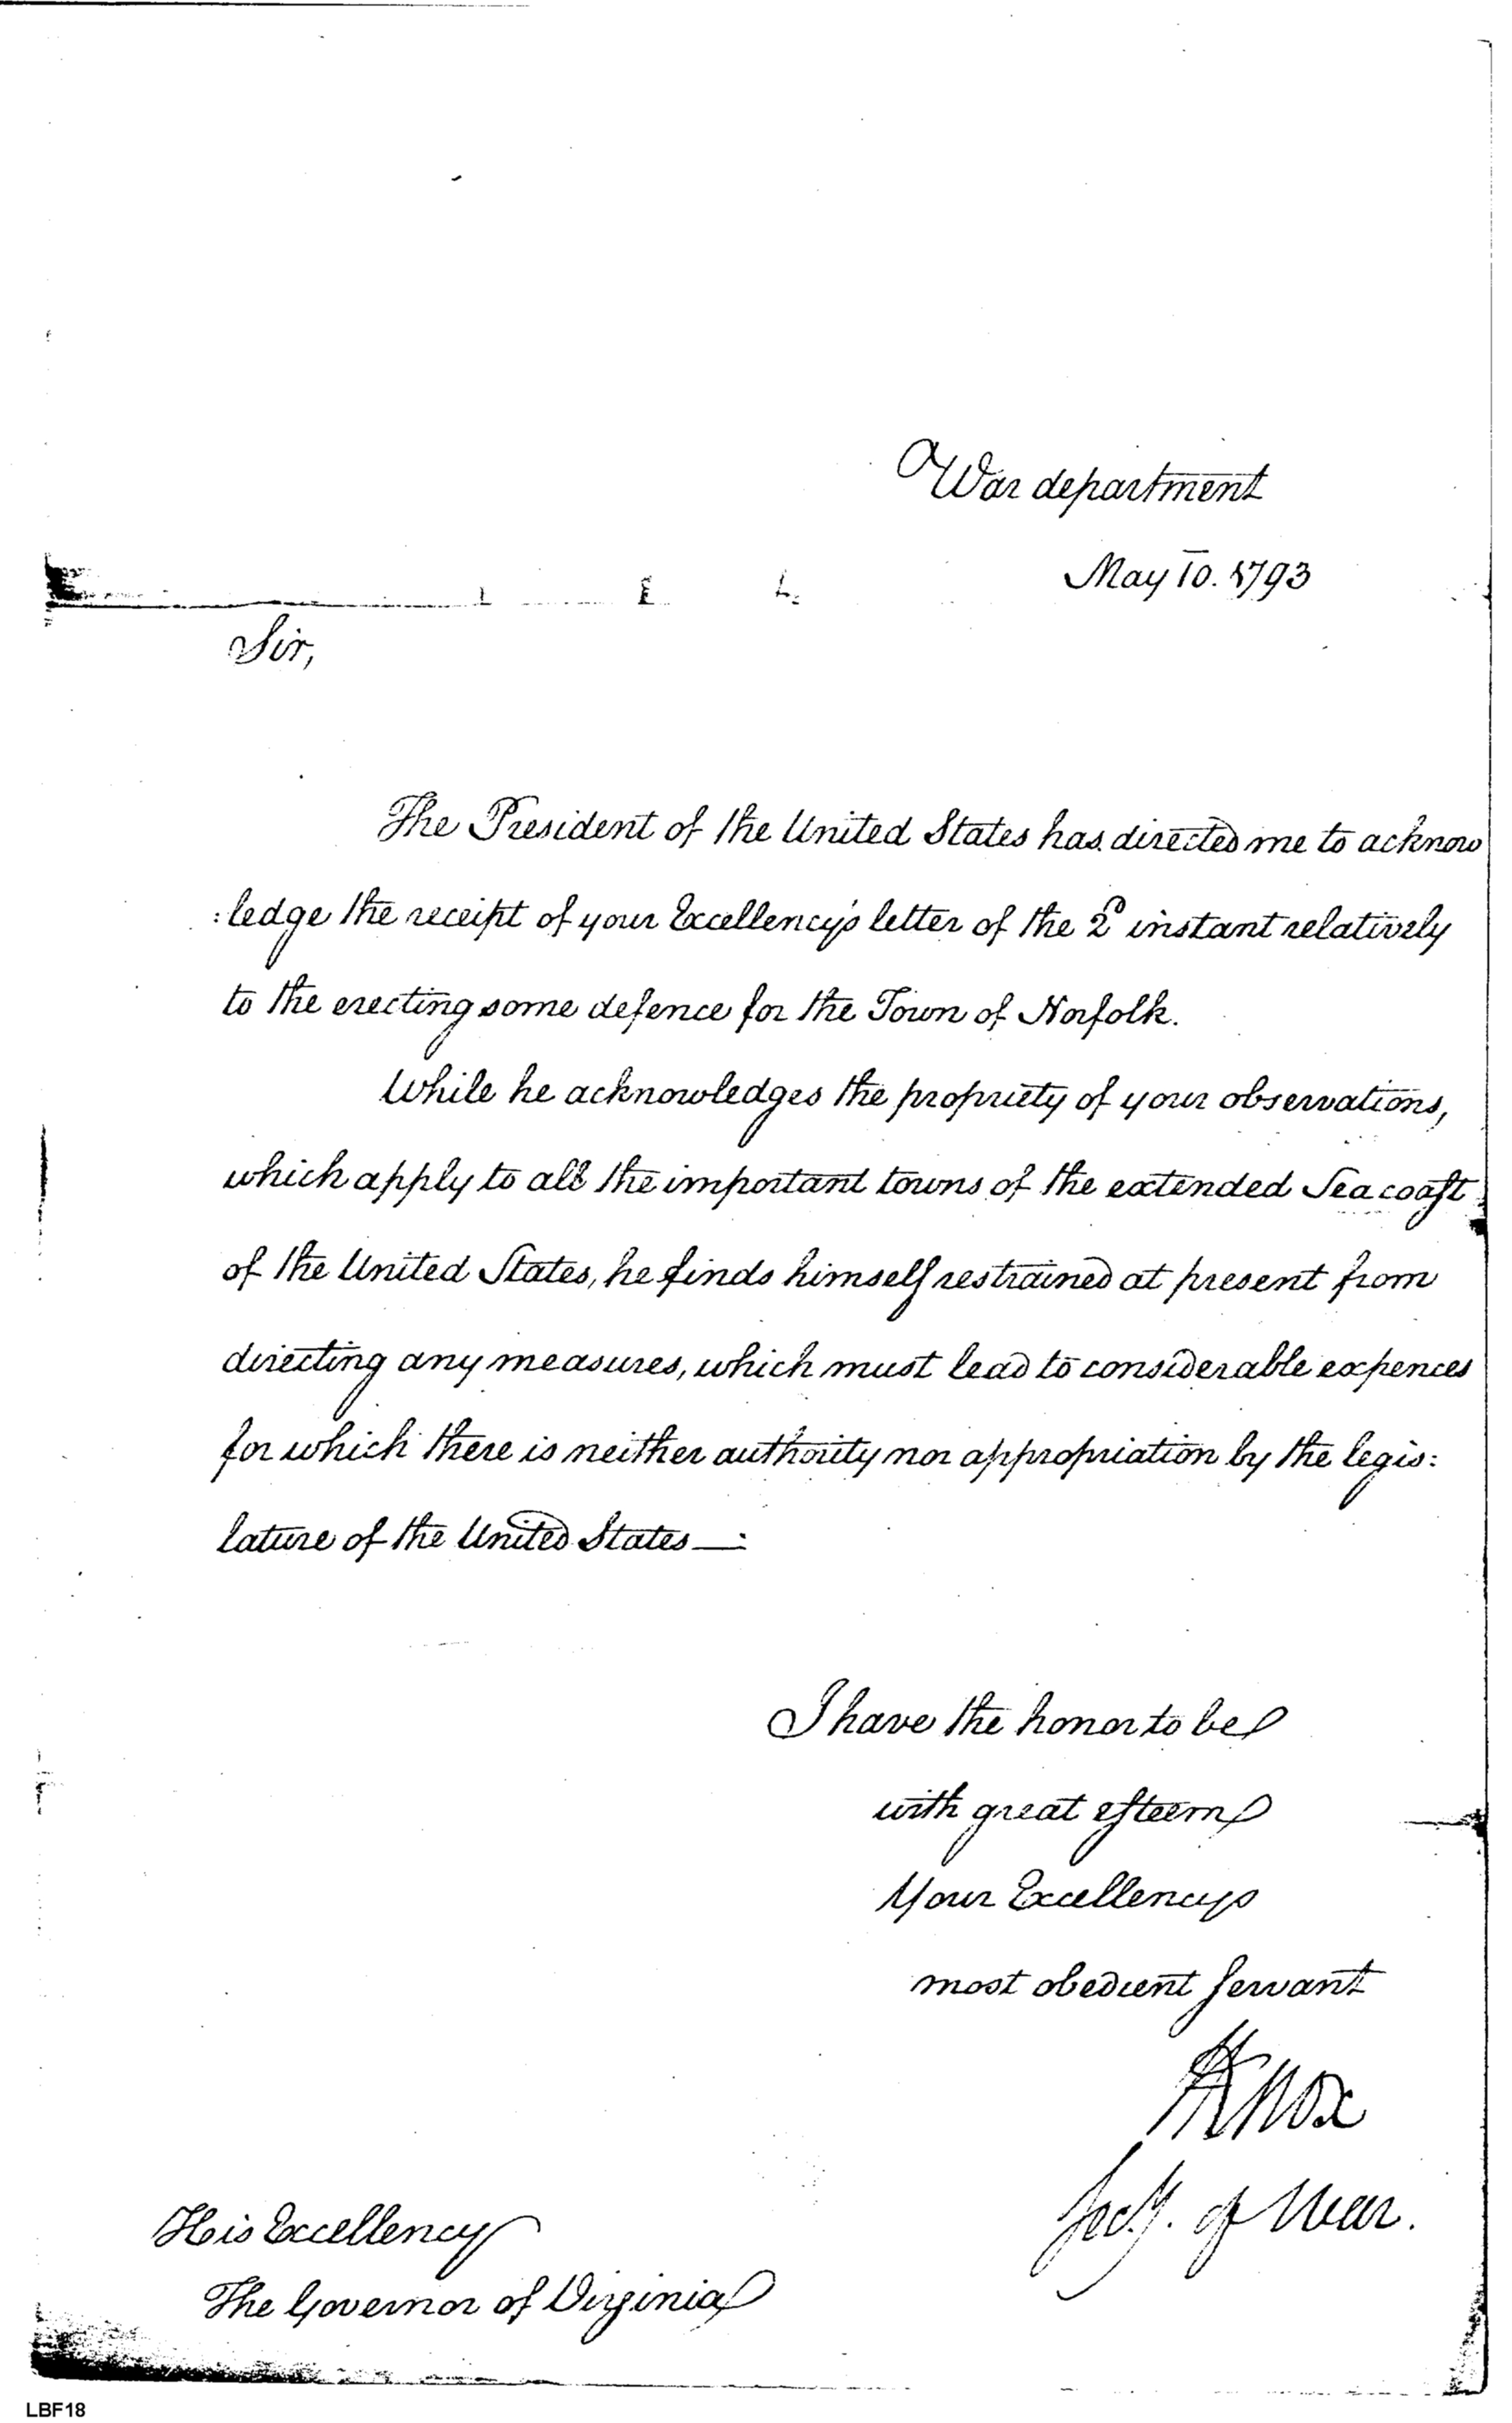 War department
May 10. 1793
Sir,
The President of the United States has directed me to acknow
:ledge the receipt of your Excellency's letter of the 2d instant relatively
to the erecting some defence for the Town of Norfolk.
While he acknowledges the propriety of your observations,
which apply to all the important towns of the extended Sea coast
of the United States, he finds himself restrained at present from
directing any measures, which must lead to considerable expences
for which there is neither authority nor appropriation by the legis:
lature of the United States —:
I have the honor to be
with great esteem
Your Excellencys
most obedient servant
HKnox
Secy. of War.
His Excellency
The Governor of Virginia
LBF18